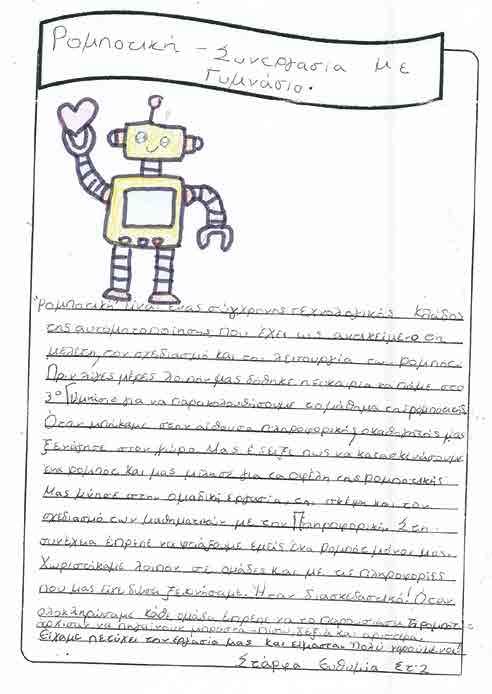 Ρομποτική - Συνεργασία με
Γυμνάσιο.
"Ρομποτική" είναι ένας σύγχρονος τεχνολογικός κλάδος
της αυτοματοποίησης που έχει ως αντικείμενο τη
μελέτη, τον σχεδιασμό και την λειτουργία των ρομπότ.
Πριν λίγες μέρες λοιπόν μας δόθηκε η ευκαιρία να πάμε στο
3ο Γυμνάσιο για να παρακολουθήσουμε το μάθημα της ρομποτικής
Όταν μπήκαμε στην αίθουσα πληροφορικής ο καθηγητής μας
ξενάγησε στον χώρο. Μας έδειξε πως να κατασκευάσουμε
ένα ρομπότ και μας μίλησε για τα οφέλη της ρομποτικής
Μας μύησε στην ομαδική εργασία, τη σκέψη και τον
σχεδιασμό των μαθηματικών με την Πληροφορική. Στη
συνέχεια έπρεπε να φτιάξουμε εμείς ένα ρομπότ μόνοι μας.
Χωριστήκαμε λοιπόν σε ομάδες και με τις πληροφορίες
που μας είχε δώσει ξεκινήσαμε. Ήταν διασκεδαστικό! Όταν
ολοκληρώσαμε κάθε ομάδα έπρεπε να το παρουσιάσει. Τα ρομπότ
άρχισαν να πηγαίνουν μπροστά - πίσω, δεξιά και αριστερά.
Είχαμε πετύχει την εργασία μας και είμασταν πολύ χαρούμενοι
Στάρφα Ευθυμία Στ'2